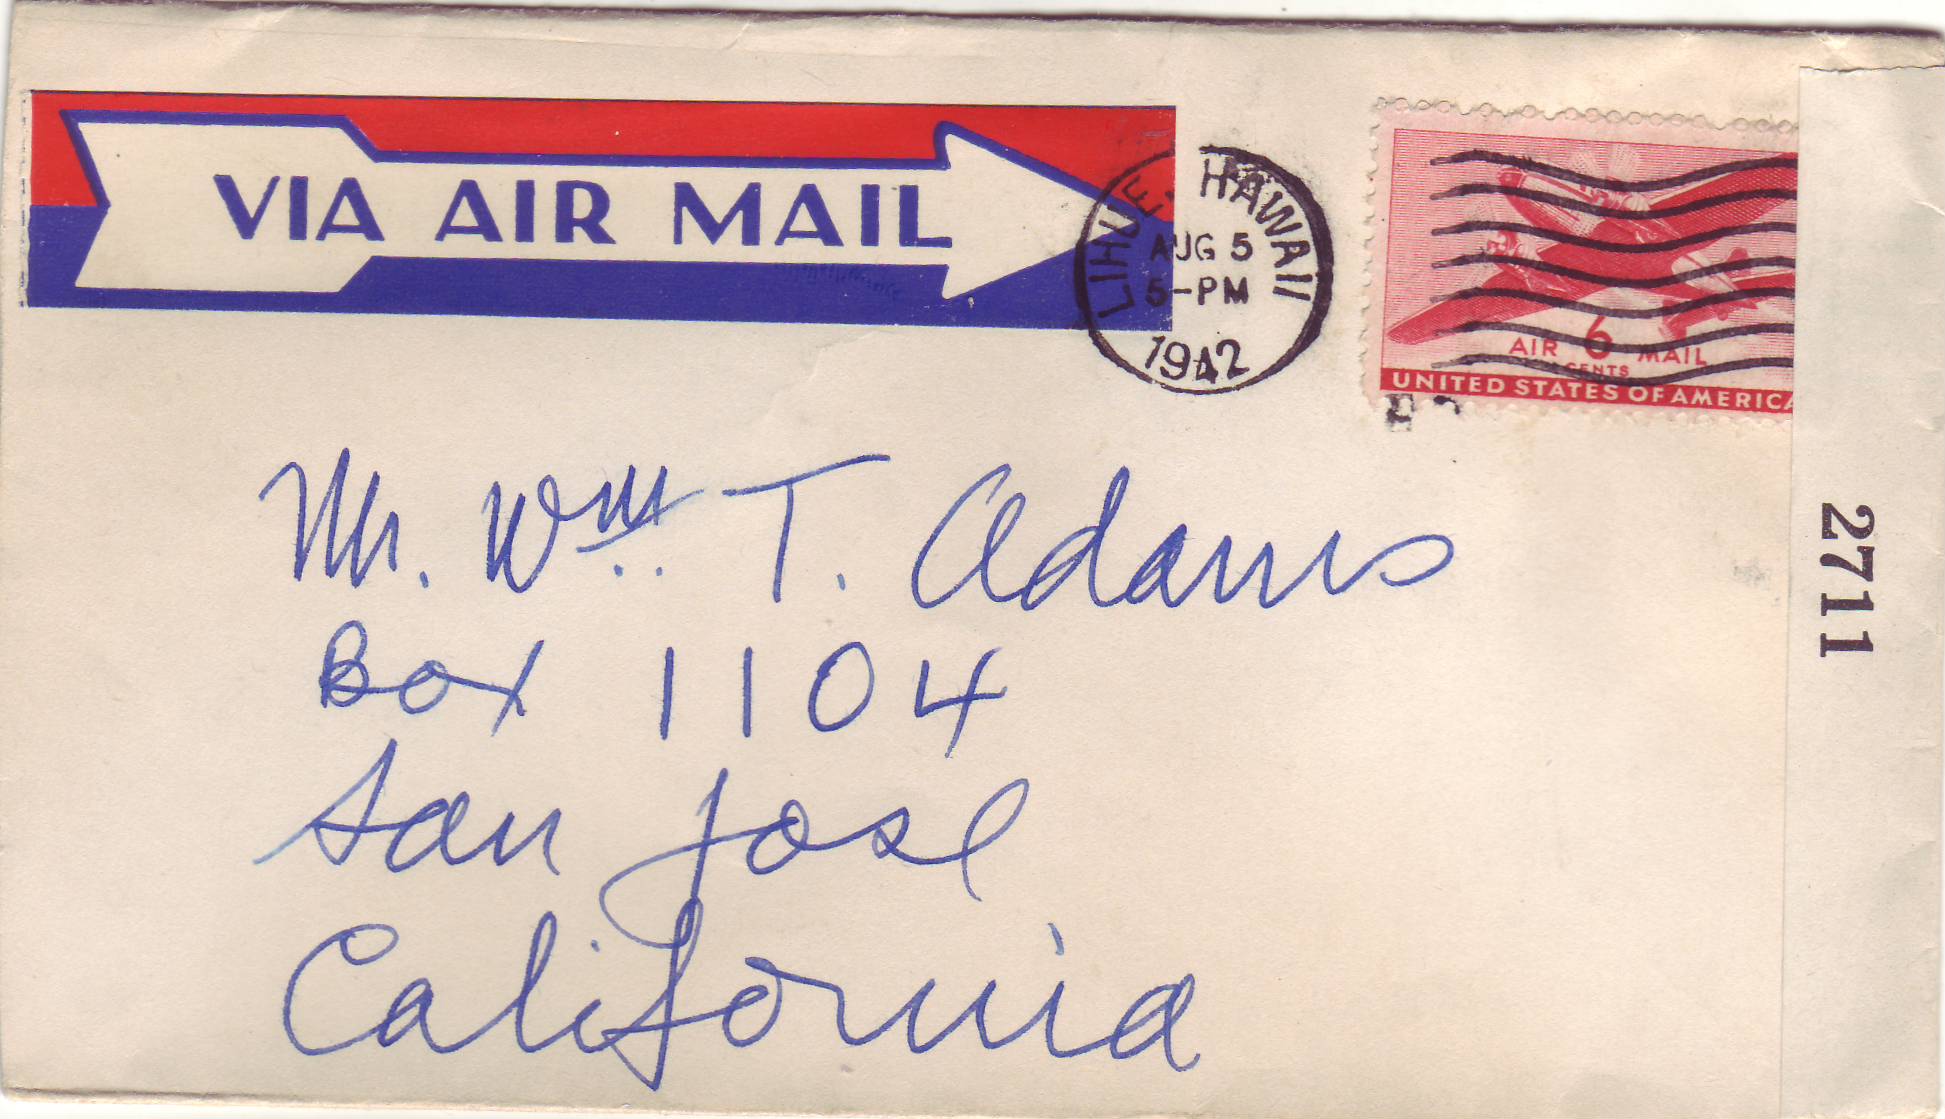 VIA AIR MAIL
LIHUE, HAWAII
AUG 5
5-PM
1942
AIR 6 MAIL
CENTS
UNITED STATES OF AMERICA
2711
Mr. Wm. T. Adams
Box 1104
San Jose
California